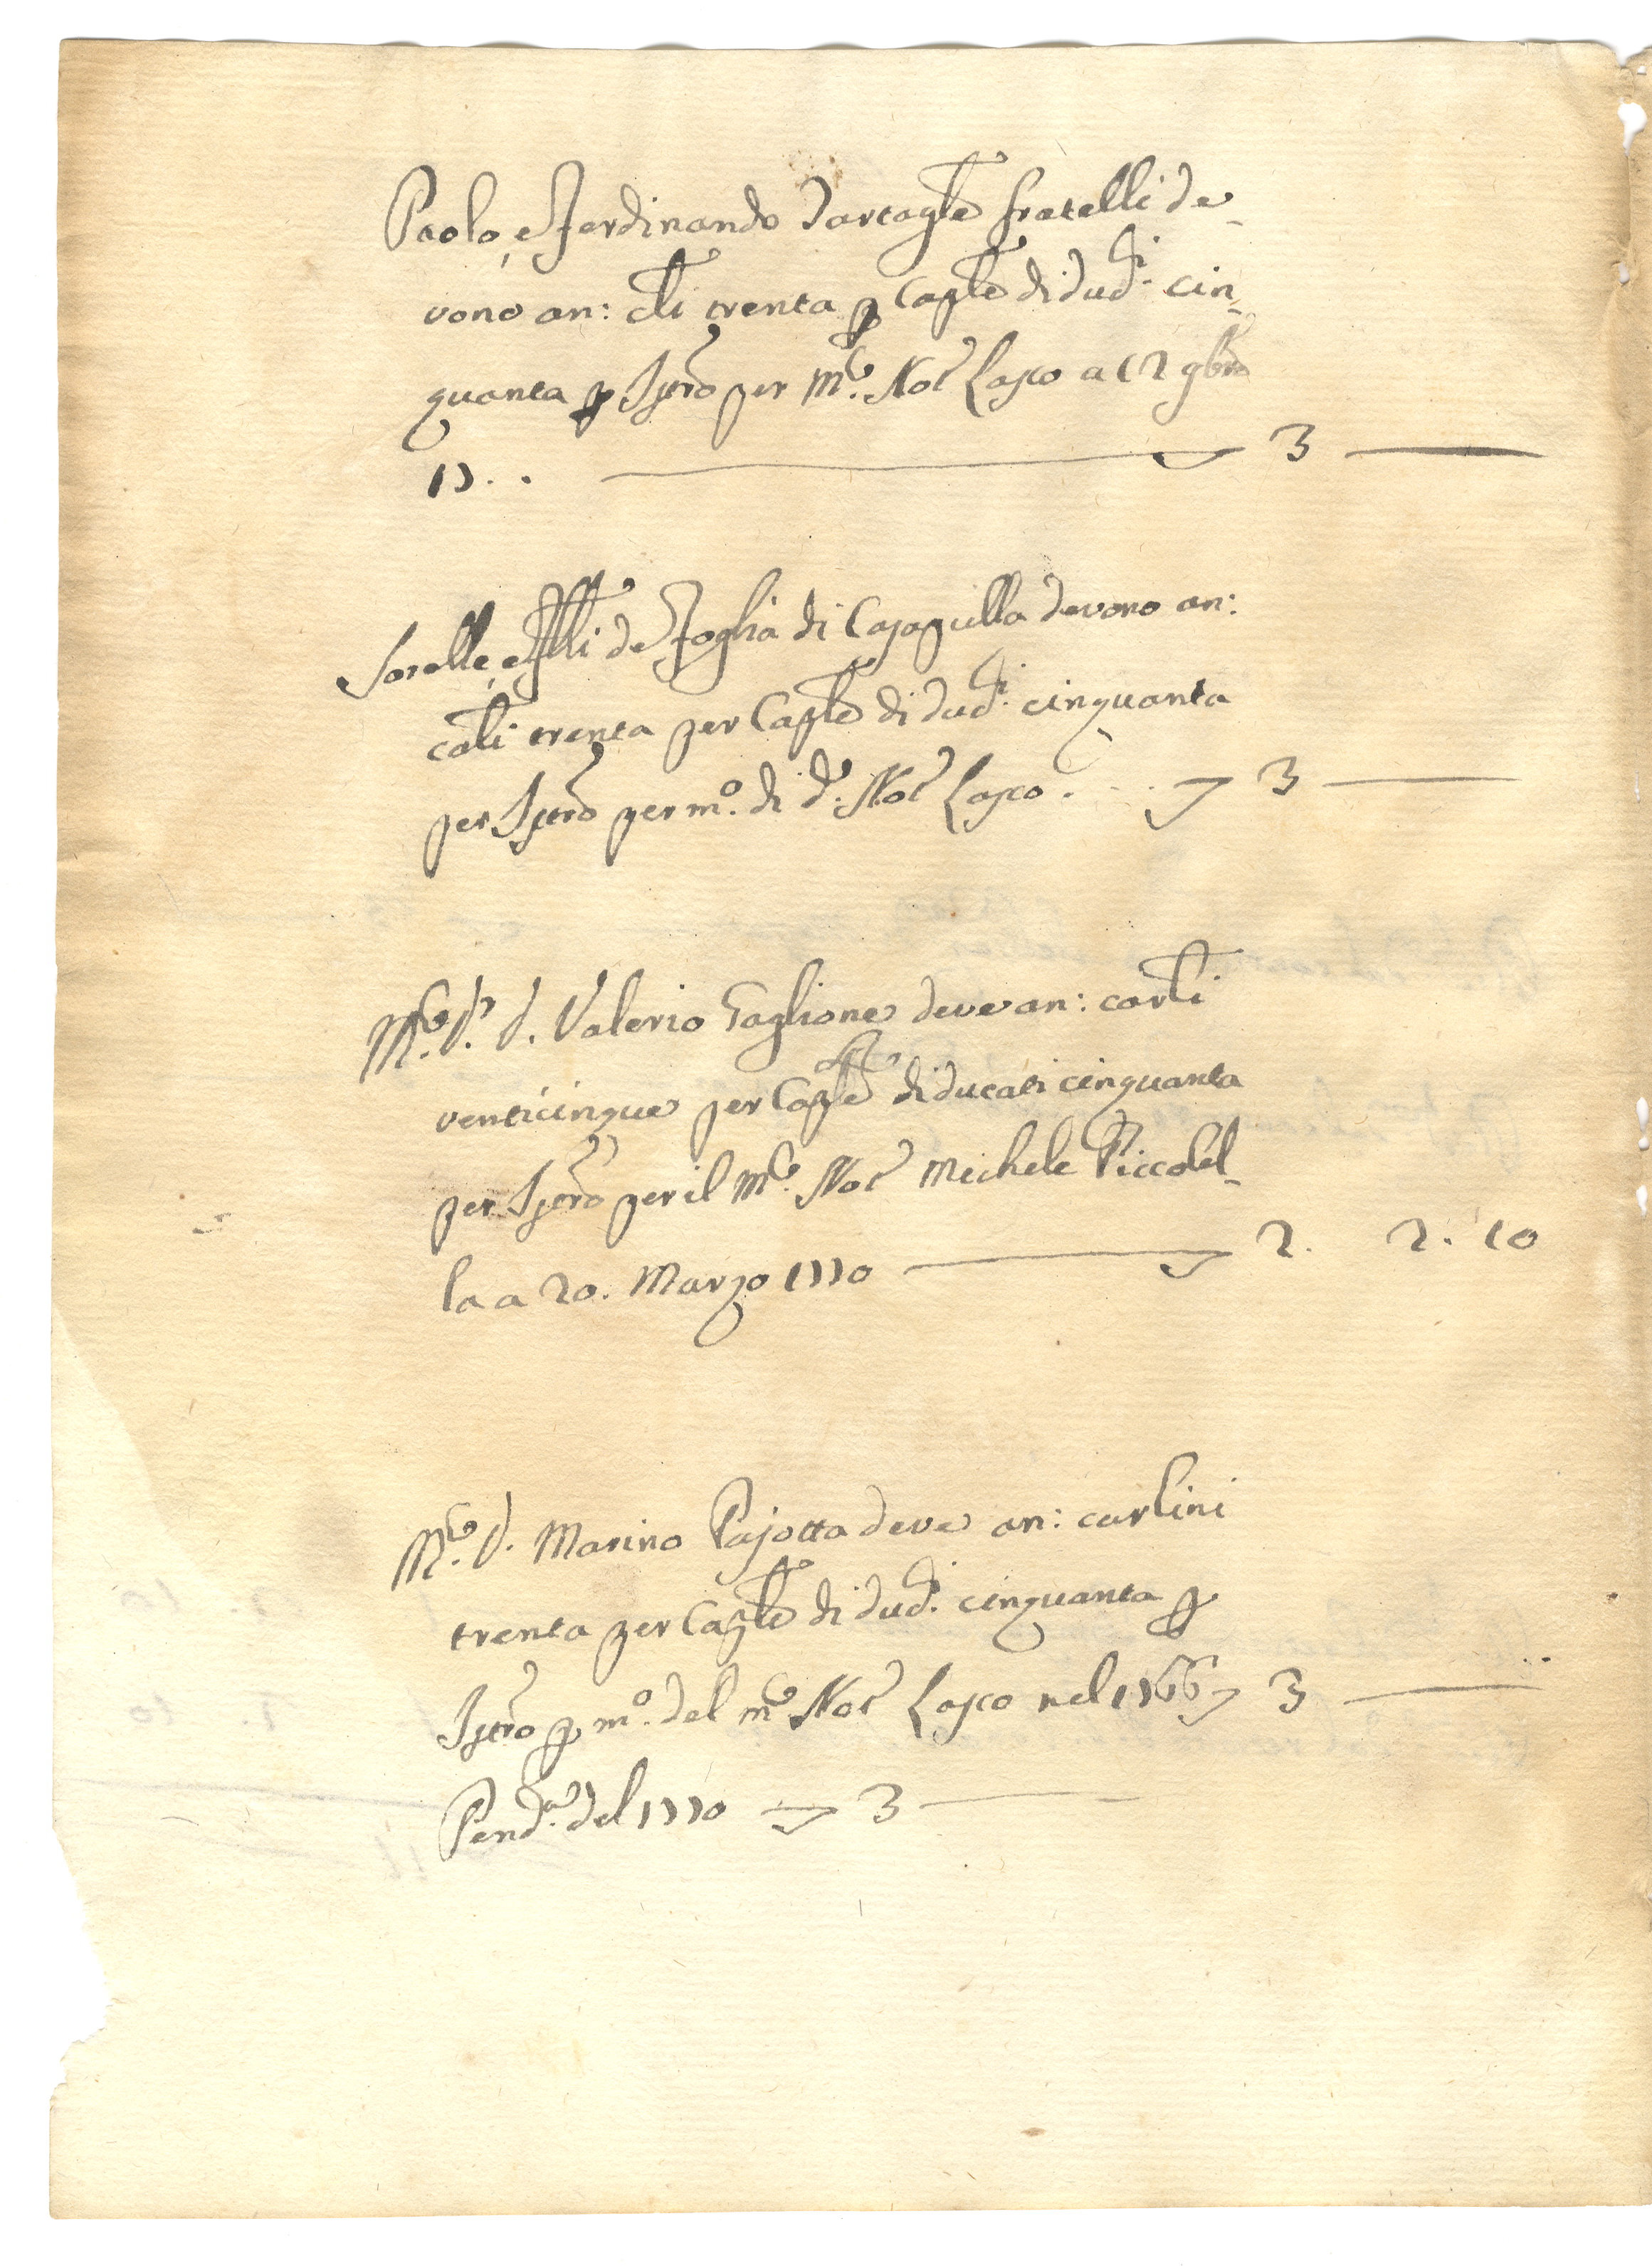 Paolo, e Ferdinando Tartagle fratelli de-
vono an: cli trenta p Caple di duc.i cin-
quanta p Istro per M.co Not.r Lasco a 12 9bre
17. . 3
Sorelle, e Flli de Foglia di Casapulla devono an:
cali trenta per Caple di duc.i cinquanta
per Istro per m.o di d.o Not.r Lasco . . . 3
M.co D.r D. Valerio Taglione deve an: carli
venticinque per Caple di ducati cinquanta
per Istro per il M.co Not.r Michele Piccolel-
la a 20. Marzo 1770 2. 2. 10
M.co D. Marino Pajotta deve an: carlini
trenta per Caple di duc.i cinquanta p
Istro p m.o del m.co Not.r Lasco nel 1766 3
Pend.a del 1770 3